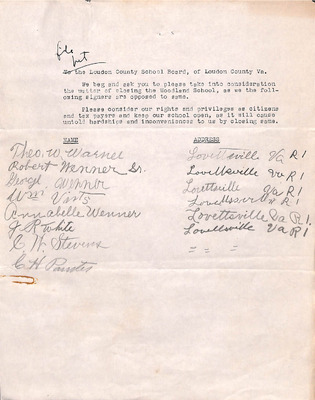 To the Loudon County School Board, of Loudon County Va.
We beg and ask you to please take into consideration
the matter of closing the Woodland School, as we the fol-
lowing signers are opposed to same.
Please consider our rights and privileges as citizens
and tax payers and keep our school open, as it will cause
untold hardships and inconveniences to us by closing same.
NAME ADDRESS
Theo. W. Lovettsville Va R 1
Robert Wenner Sr. Lovettsville Va R 1
Wenner Lovettsville Va R 1
Wm Virts Lovettsville Va R 1
Annabelle Wenner Lovettsville Va R 1.
J R White Lovettsville Va R 1
C W Stevens " " "
C H